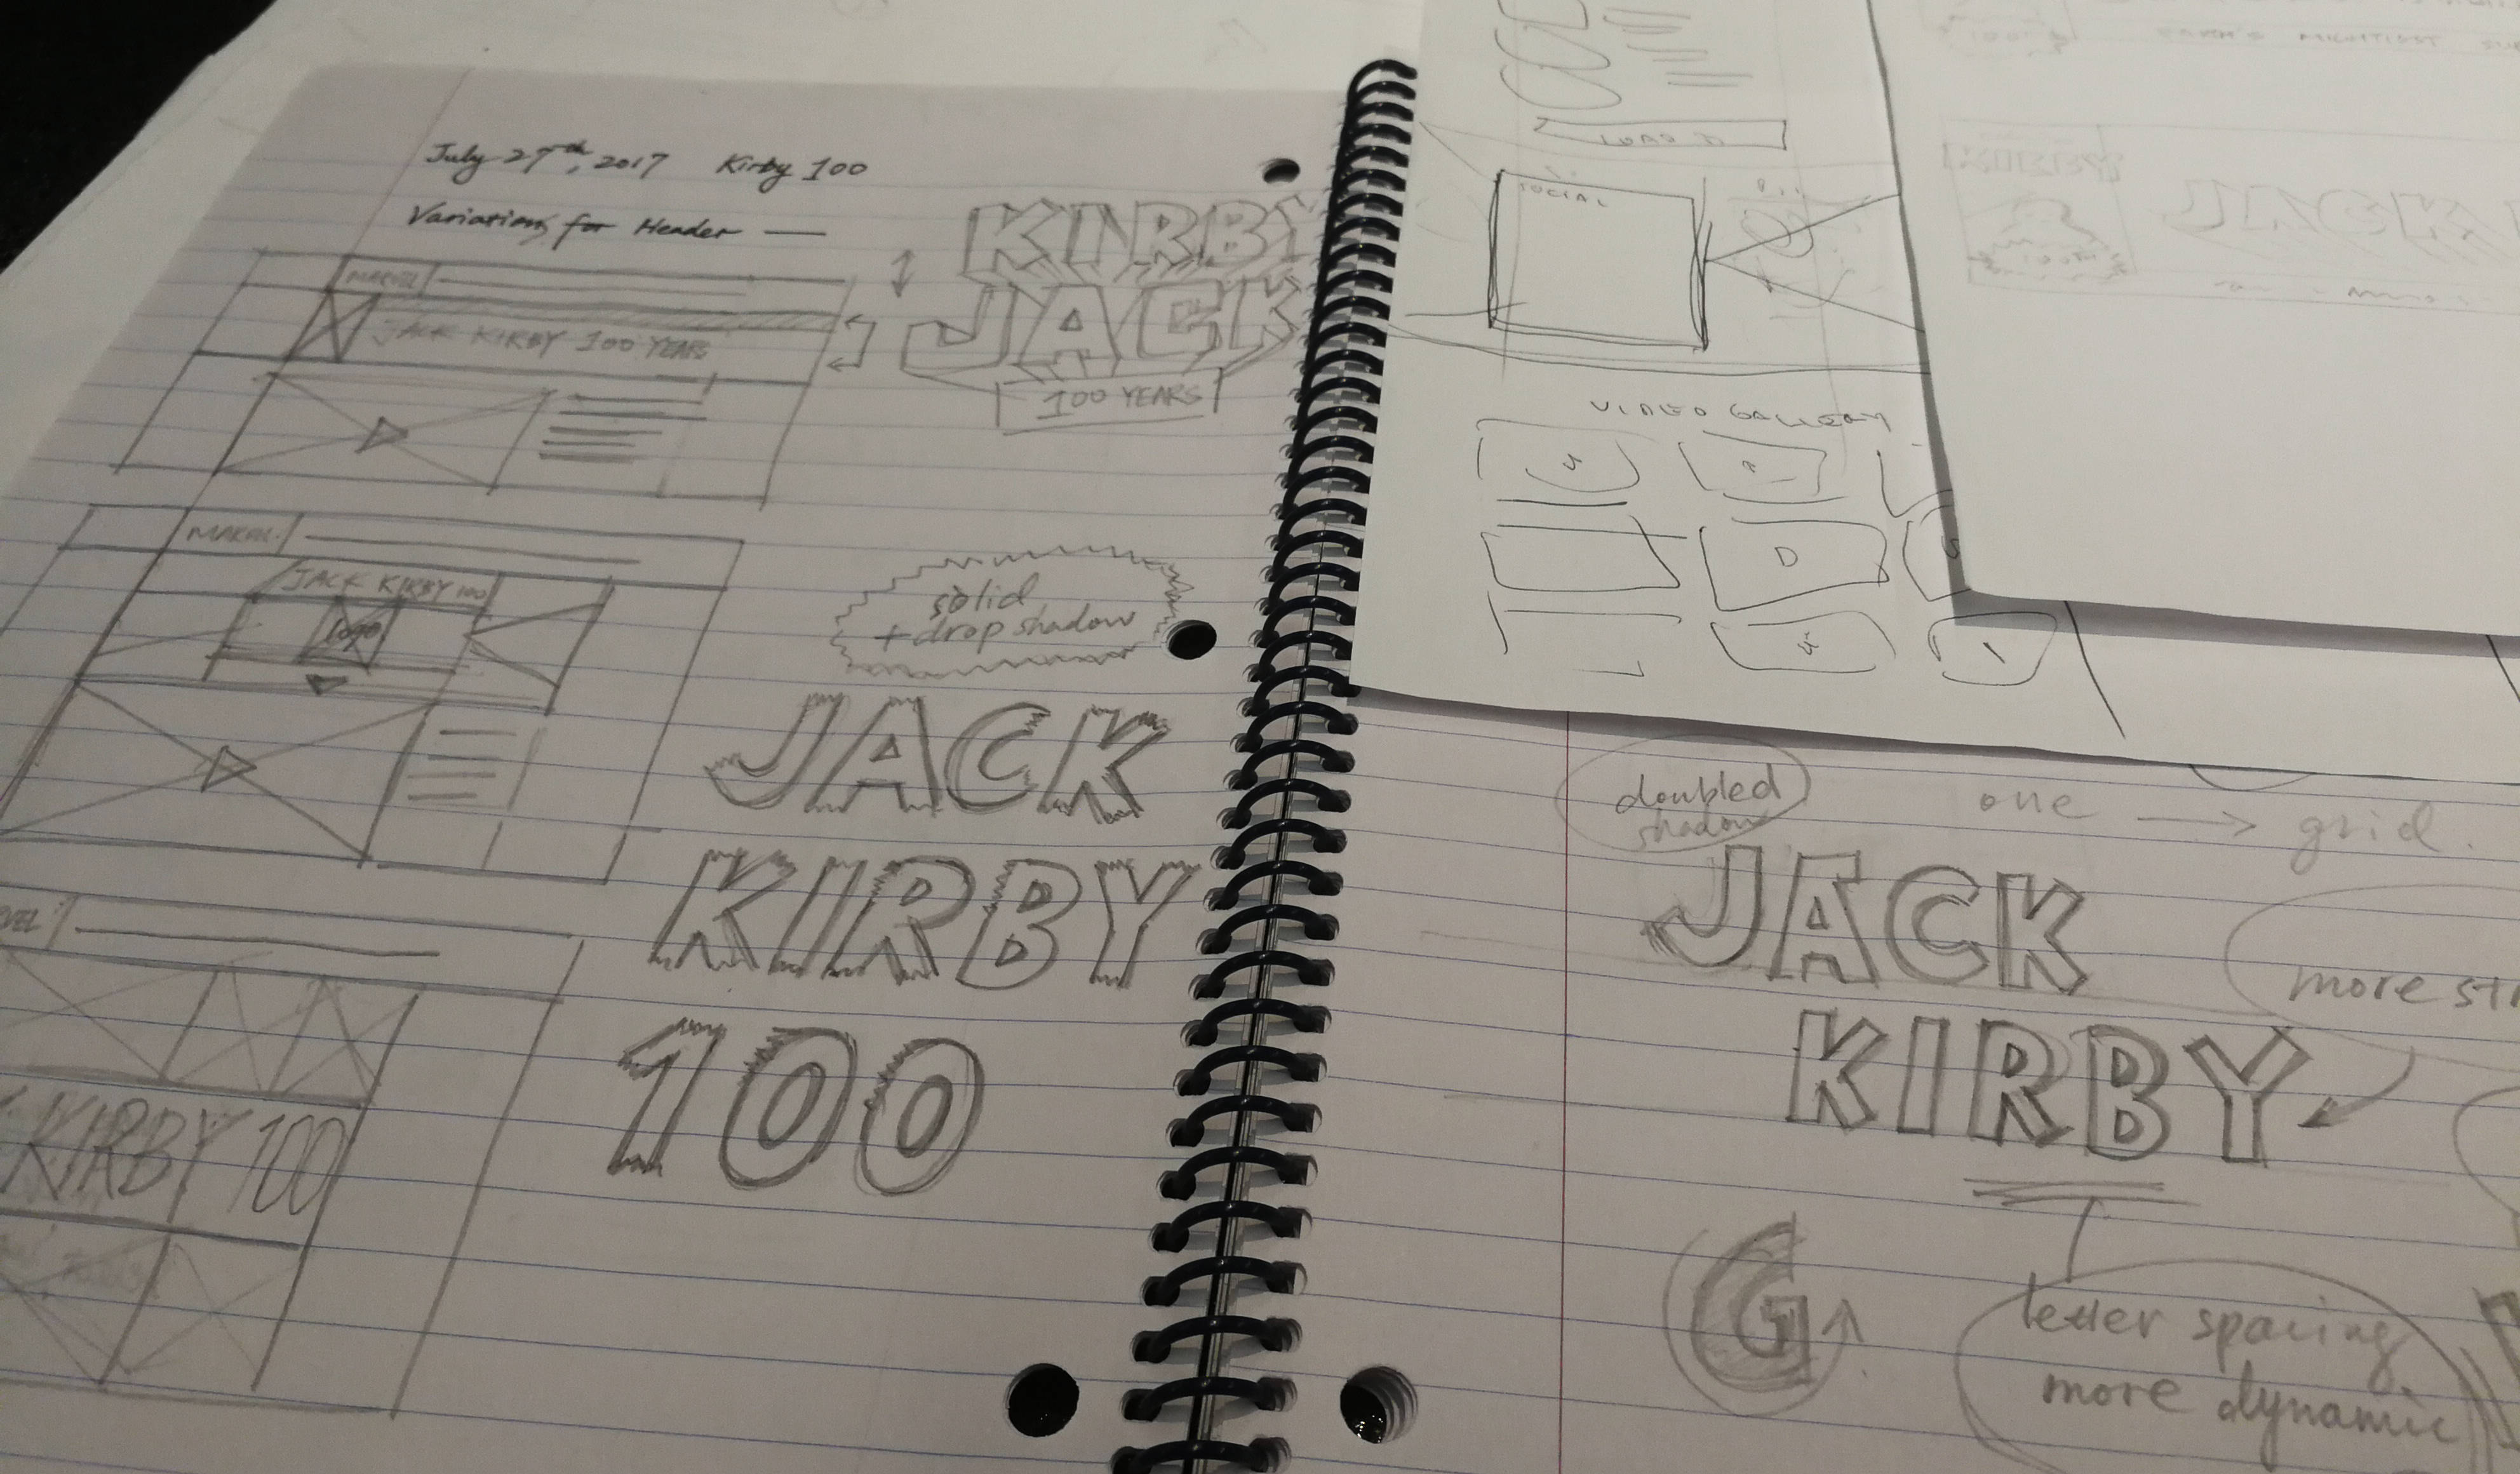 July 27th, 2017 Kirby 100
Variations for Header —
MARVEL
JACK KIRBY 100 YEARS
KIRBY
JACK
100 YEARS
MARVEL
JACK KIRBY 100
logo
solid
+ drop shadow
JACK
KIRBY
100
KIRBY 100
SOCIAL
VIDEO GALLERY
KIRBY
JACK
100TH
doubled
shadow
one → grid.
JACK
KIRBY
more
G
letter spacing
more dynamic